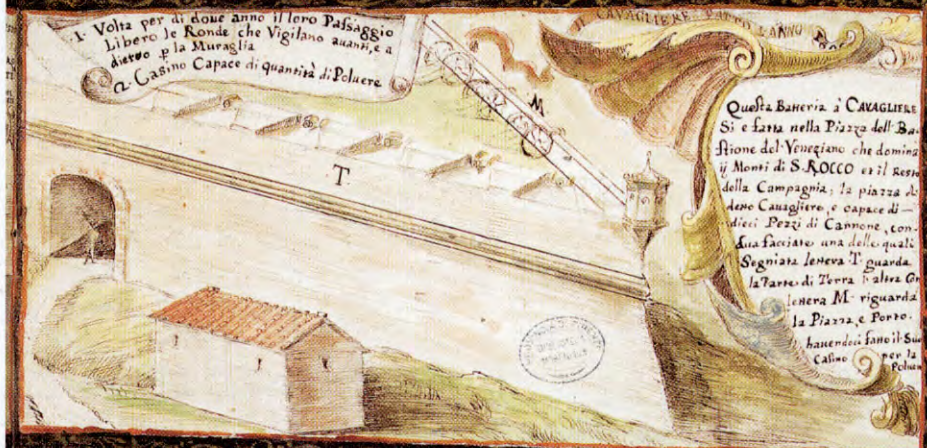 1. Volta per di doue anno il loro Passaggio
Libero le Ronde che Vigilano auanti, e a
dietro p la Muraglia
2. Casino Capace di quantità di Poluere
IL CAVAGLIERE FATTO L'ANNO
M
T
Questa Batteria à CAVAGLIERE
Si e fatta nella Piazza dell Ba-
stione del Veneziano che domina
ij Monti di S. ROCCO et il Resto
della Campagnia, la piazza di
detto Cauagliero, e capace di
dieci Pezzi di Cannone, con
sua facciate una delle quali
Segniata lettera T guarda
la Parte di Terra l altra
lettera M riguarda
la Piazza, e Porto.
hauendoci fatto il Suo
Casino per la